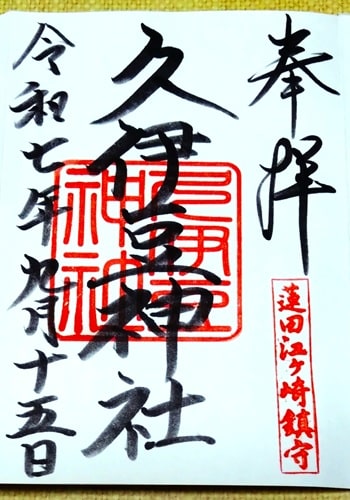 奉拝
蓮田江ヶ崎鎮守
久伊豆神社
久伊豆神社
令和七年九月十五日